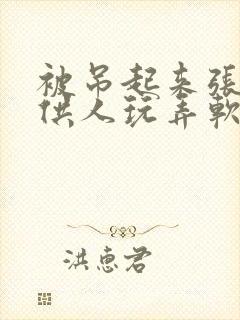 被吊起来张
供人玩弄軟
洪惠君